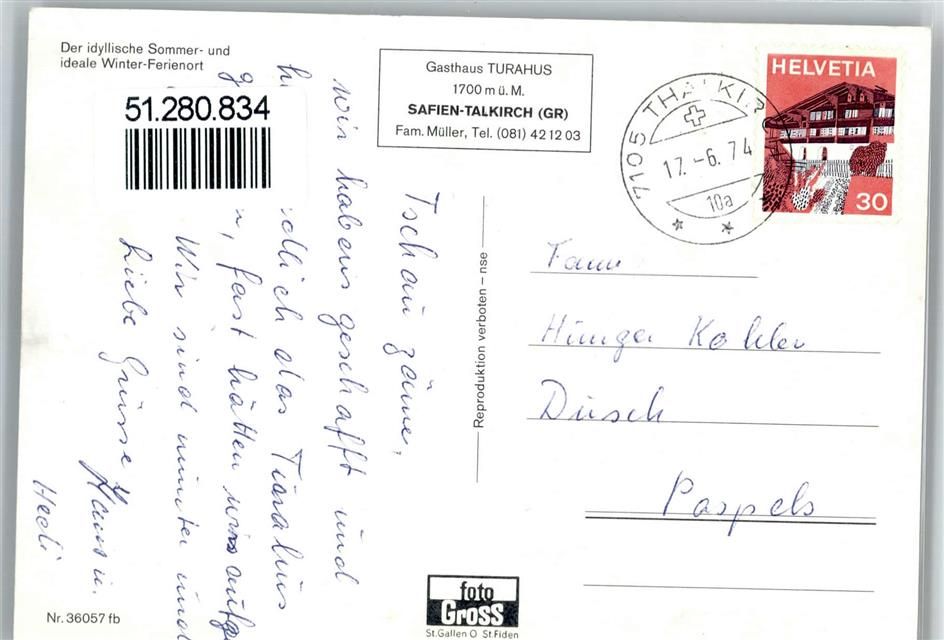 Der idyllische Sommer- und
ideale Winter-Ferienort
51.280.834
Gasthaus TURAHUS
1700 m ü. M.
SAFIEN-TALKIRCH (GR)
Fam. Müller, Tel. (081) 42 12 03
7105 THALKIRCH
17.-6.74
10a
HELVETIA
30
Tschau zäme,
wir habens geschafft und
das Turahus
fast hätten wir's aufge
Wir sind munter und
Liebe Grüsse
Hans u.
Hedi
Reproduktion verboten – nse
Fam
Hunger Kohler
Dusch
Paspels
Nr. 36057 fb
foto
Gross
St.Gallen O St.Fiden